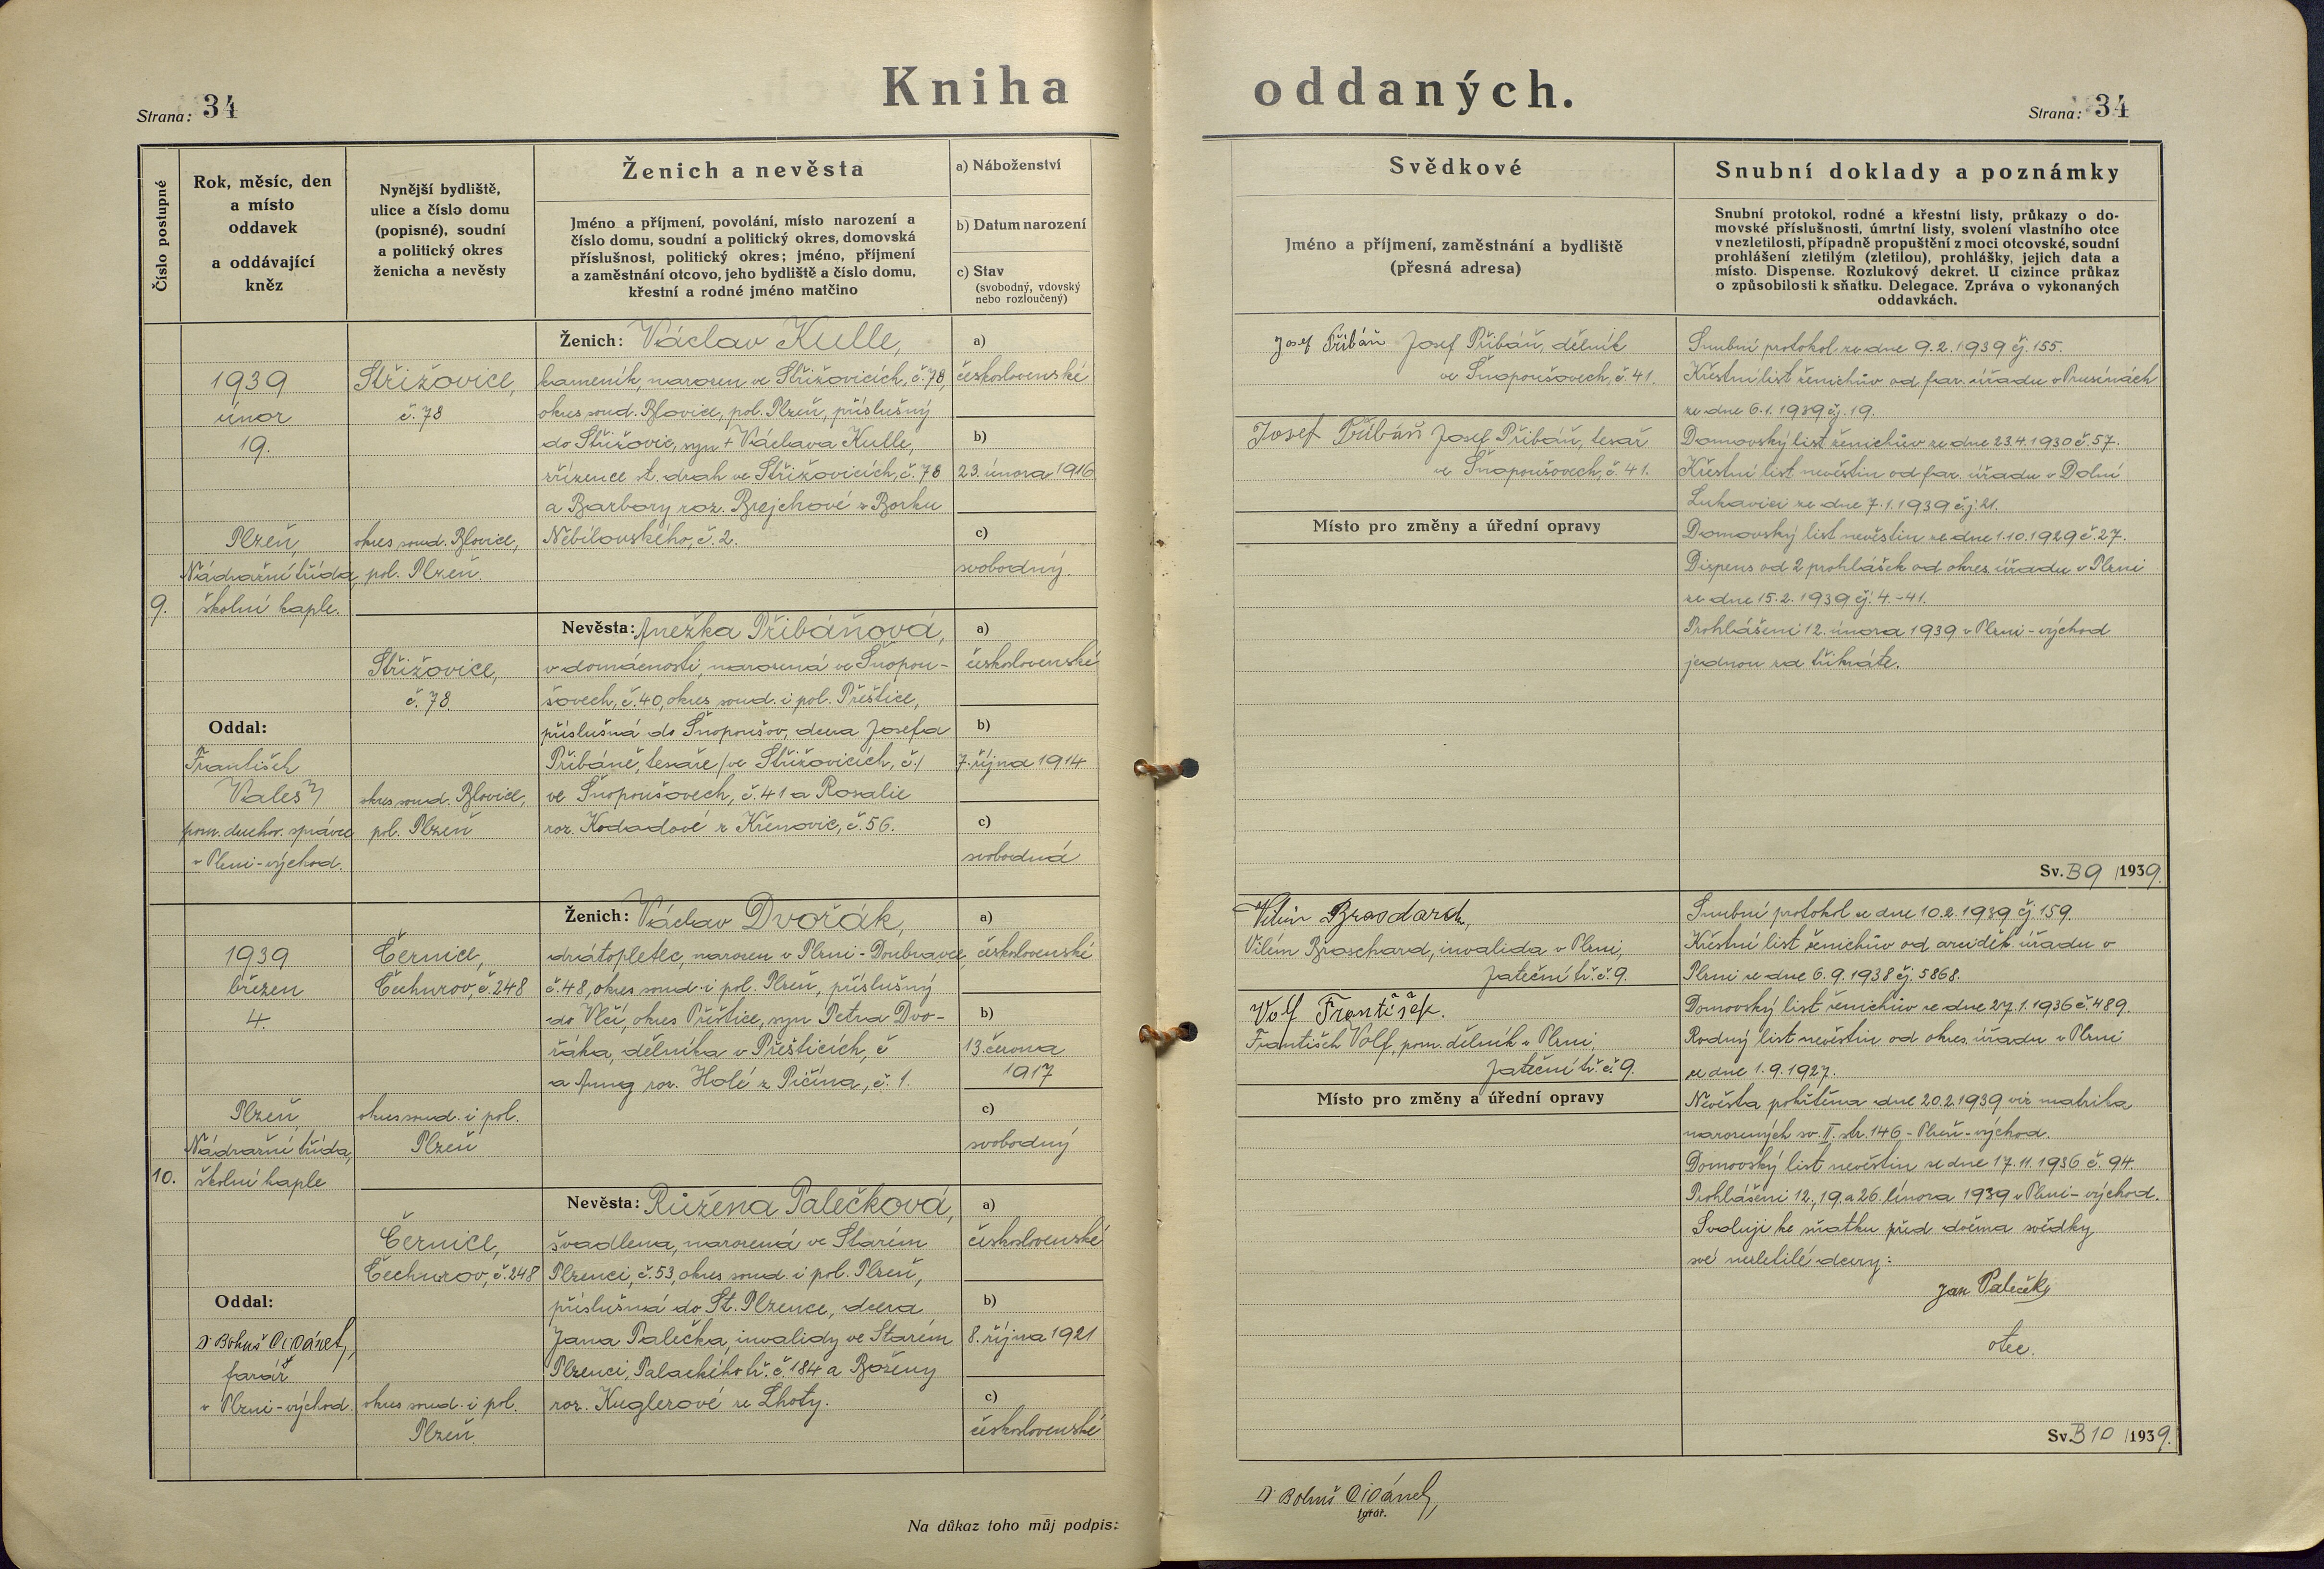 Kniha oddaných.
Strana: 34
Strana: 34
Číslo postupné
Rok, měsíc, den
a místo
oddavek
a oddávající
kněz
Nynější bydliště,
ulice a číslo domu
(popisné), soudní
a politický okres
ženicha a nevěsty
Ženich a nevěsta
Jméno a příjmení, povolání, místo narození a
číslo domu, soudní a politický okres, domovská
příslušnost, politický okres; jméno, příjmení
a zaměstnání otcovo, jeho bydliště a číslo domu,
křestní a rodné jméno matčino
a) Náboženství
b) Datum narození
c) Stav
(svobodný, vdovský
nebo rozloučený)
Svědkové
Jméno a příjmení, zaměstnání a bydliště
(přesná adresa)
Snubní doklady a poznámky
Snubní protokol, rodné a křestní listy, průkazy o do-
movské příslušnosti, úmrtní listy, svolení vlastního otce
v nezletilosti, případně propuštění z moci otcovské, soudní
prohlášení zletilým (zletilou), prohlášky, jejich data a
místo. Dispense. Rozlukový dekret. U cizince průkaz
o způsobilosti k sňatku. Delegace. Zpráva o vykonaných
oddavkách.
9.
1939
únor
19.
Plzeň,
Nádražní třída,
školní kaple.
Oddal:
František
Valeš
pom. duchov. správce
v Plzni-východ.
Střižovice,
č. 78
okres soud. Blovice,
pol. Plzeň.
Střižovice,
č. 78.
okres soud. Blovice,
pol. Plzeň
Ženich: Václav Kulle,
kameník, narozen ve Střižovicích, č. 78,
okres soud. Blovice, pol. Plzeň, příslušný
do Střižovic, syn + Václava Kulle,
zřízence st. drah ve Střižovicích, č. 78
a Barbory roz. Brejchové z Borku
Nebílovského, č. 2.
Nevěsta: Anežka Přibáňová,
v domácnosti, narozená ve Snopou-
šovech, č. 40, okres soud. i pol. Přeštice,
příslušná do Snopoušov, dcera Josefa
Přibáně, tesaře /ve Střižovicích, č./
ve Snopoušovech, č. 41 a Rosalie
roz. Kodadové z Křenovic, č. 56.
a)
československé
b)
23. února 1916
c)
svobodný.
a)
československé
b)
7. října 1914
c)
svobodná
Josef Přibáň Josef Přibáň, dělník
ve Snopoušovech, č. 41.
Josef Přibáň Josef Přibáň, tesař
ve Snopoušovech, č. 41.
Místo pro změny a úřední opravy
Snubní protokol ze dne 9. 2. 1939 čj. 155.
Křestní list ženichův od far. úřadu v Prusinách
ze dne 6. 1. 1939 čj. 19.
Domovský list ženichův ze dne 23. 4. 1930 č. 57.
Křestní list nevěstin od far. úřadu v Dolní
Lukavici ze dne 7. 1. 1939 čj. 21.
Domovský list nevěstin ze dne 1. 10. 1929 č. 27.
Dispens od 2 prohlášek od okres. úřadu v Plzni
ze dne 15. 2. 1939 čj. 4.-41.
Prohlášeni 12. února 1939 v Plzni-východ
jednou za třikráte.
Sv. B 9 /1939.
10.
1939
březen
4.
Plzeň,
Nádražní třída,
školní kaple
Oddal:
Dr Bohuš
farář
v Plzni-východ.
Černice,
Čechurov, č. 248
okres soud. i pol.
Plzeň
Černice,
Čechurov, č. 248
okres soud. i pol.
Plzeň.
Ženich: Václav Dvořák,
drátopletec, narozen v Plzni-Doubravce,
č. 48, okres soud. i pol. Plzeň, příslušný
do Vlčí, okres Přeštice, syn Petra Dvo-
řáka, dělníka v Přešticích, č
a Anny roz. Holé z Pičína, č. 1.
Nevěsta: Růžena Palečková,
švadlena, narozená ve Starém
Plzenci, č. 53, okres soud. i pol. Plzeň,
příslušná do St. Plzence, dcera
Jana Palečka, invalidy ve Starém
Plzenci, Palackého tř. č. 184 a Boženy
roz. Kuglerové ze Lhoty.
a)
československé
b)
13. června
1917
c)
svobodný
a)
československé
b)
8. října 1921
c)
československé
Vilém
Vilém Braschard, invalida v Plzni,
Jateční tř. č. 9.
Volf František.
František Volf, pom. dělník v Plzni,
Jateční tř. č. 9.
Místo pro změny a úřední opravy
Snubní protokol ze dne 10. 2. 1939 čj. 159.
Křestní list ženichův od arciděk. úřadu v
Plzni ze dne 6. 9. 1938 čj. 5868.
Domovský list ženichův ze dne 27. 1. 1936 č. 489.
Rodný list nevěstin od okres. úřadu v Plzni
ze dne 1. 9. 1927.
Nevěsta pokřtěna dne 20. 2. 1939 viz matrika
narozených sv. II. str. 146 - Plzeň-východ.
Domovský list nevěstin ze dne 17. 11. 1936 č. 94.
Prohlášeni 12., 19. a 26. února 1939 v Plzni-východ.
Svoluji ke sňatku před dvěma svědky
své nezletilé dcery:
Jan Paleček
otec.
Sv. B 10 /1939.
Na důkaz toho můj podpis:
Dr Bohuš
farář.